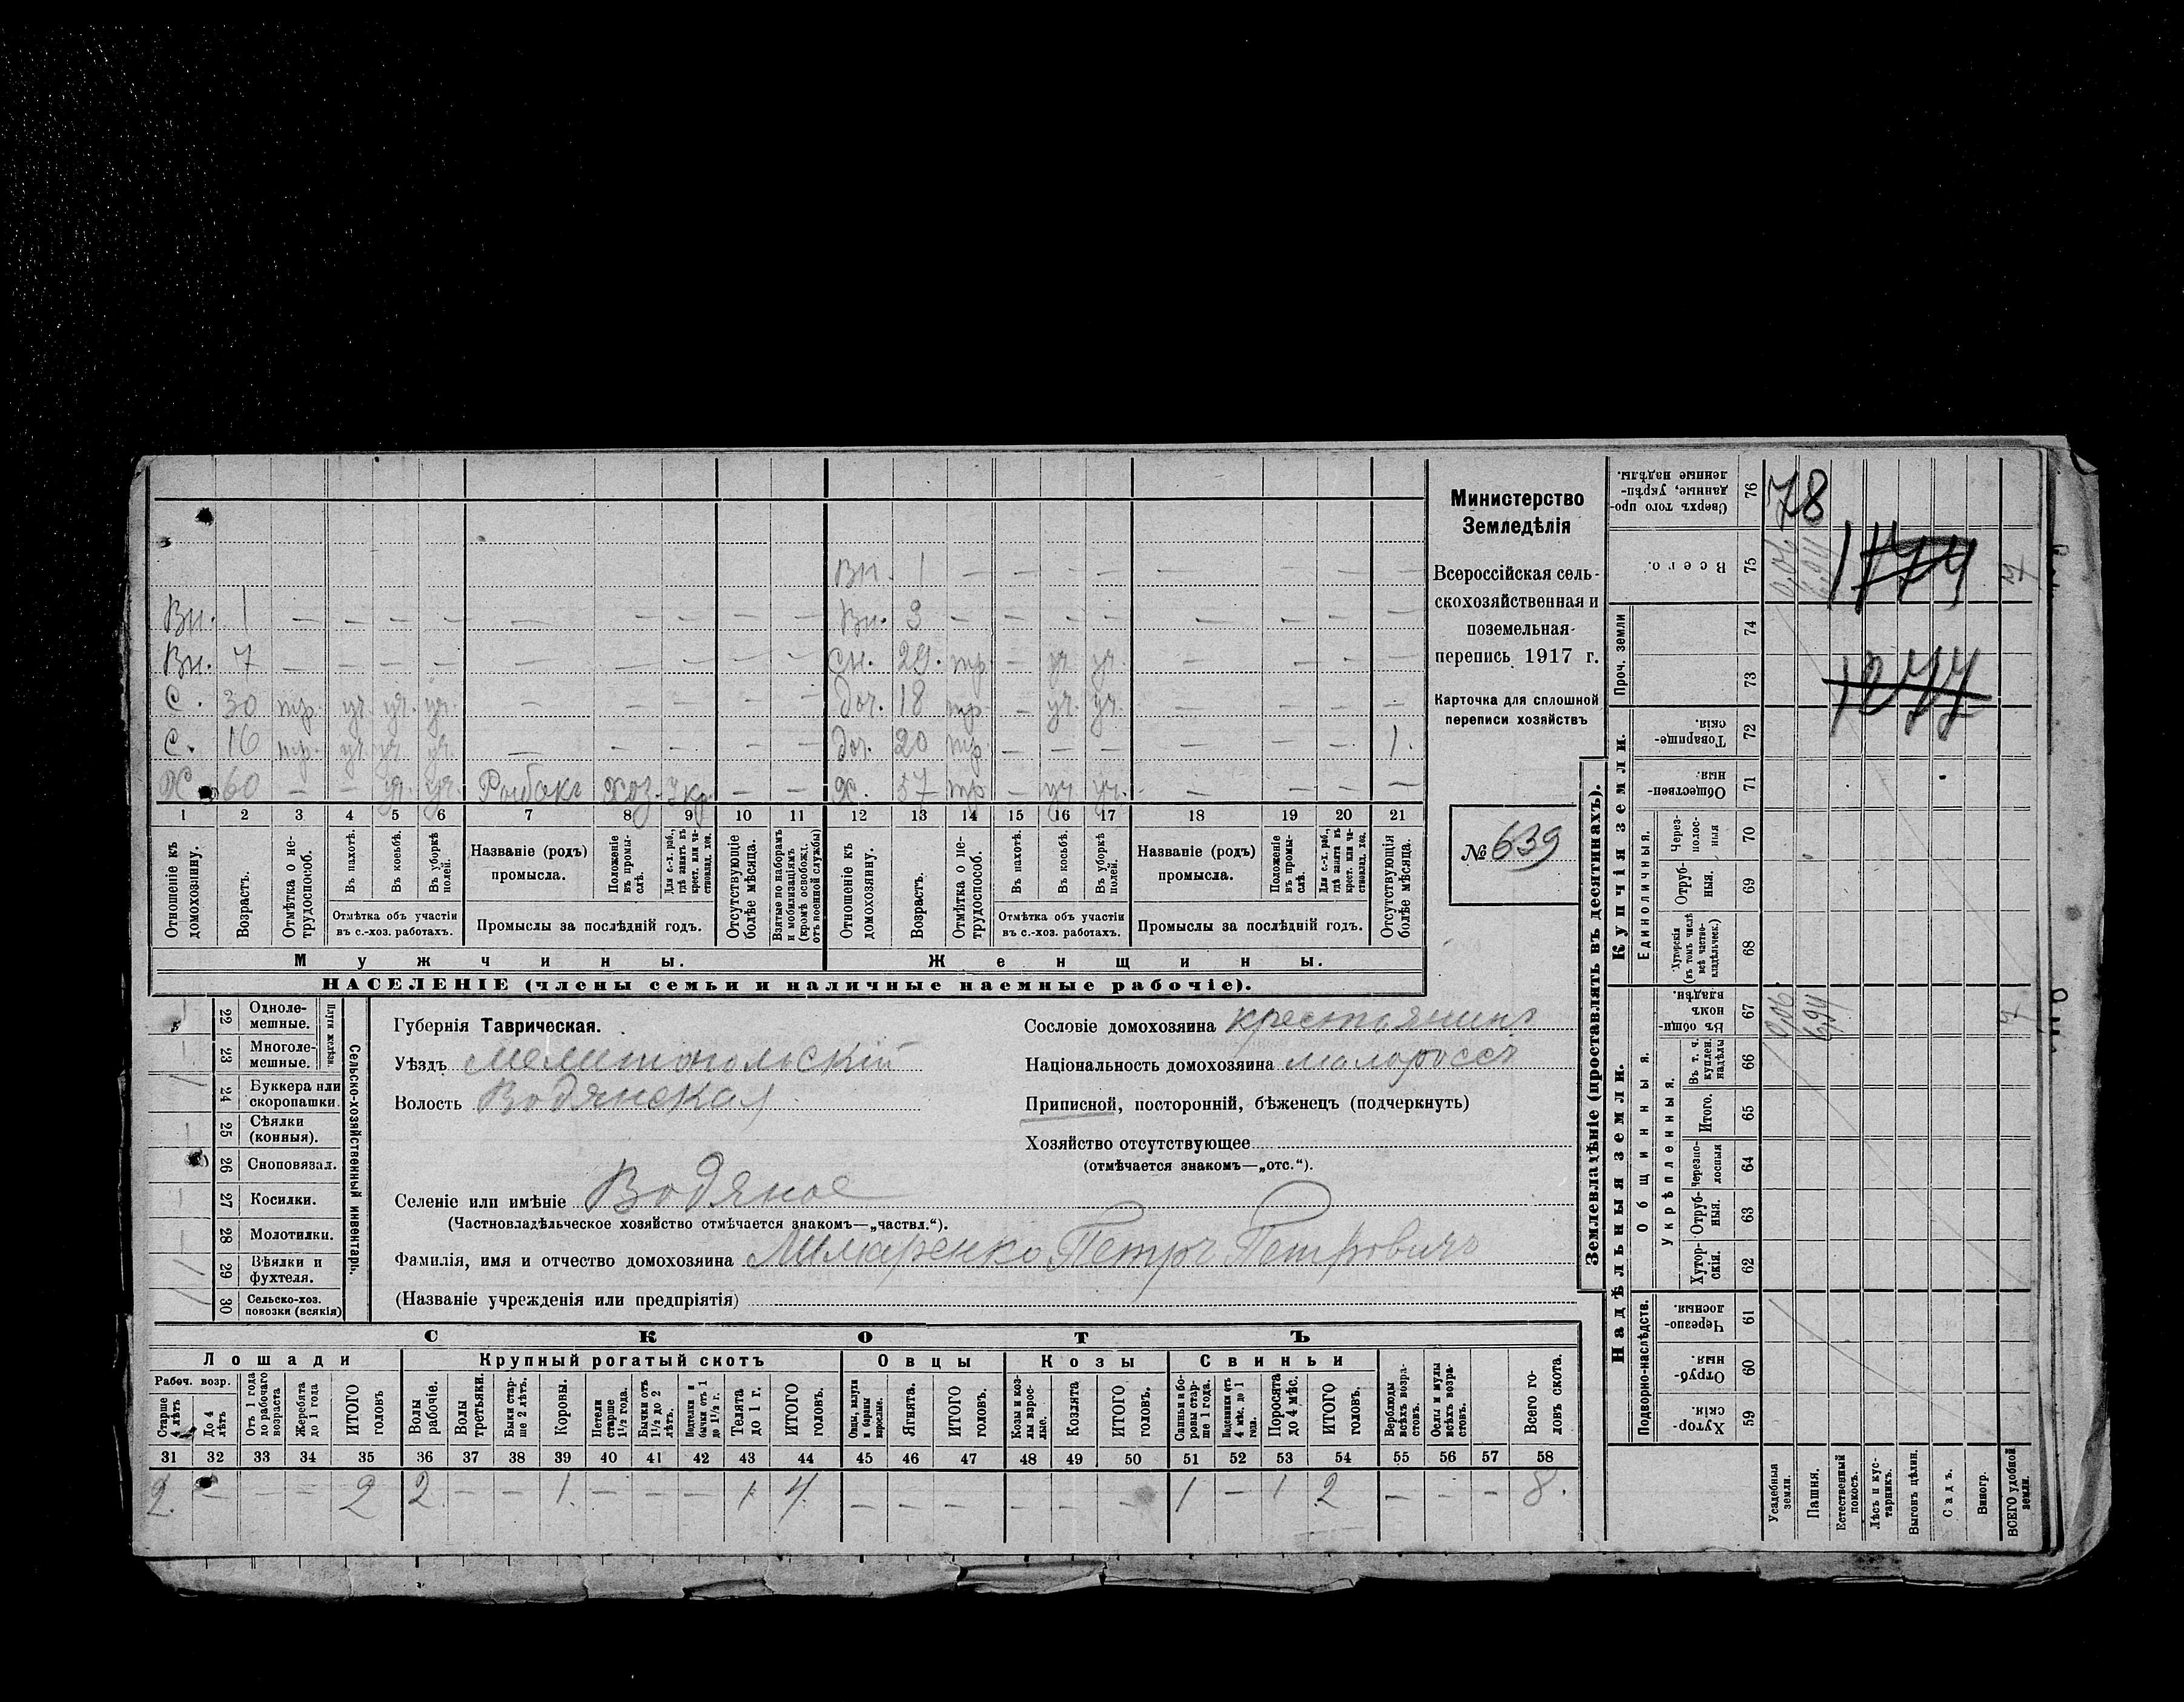 Министерство
Земледѣлія
Всероссійская сель-
скохозяйственная и
поземельная-
перепись 1917 г.
Карточка для сплошной
переписи хозяйствъ
№ 639
Вн. 1 — — — — — — — — —
Вн. 1 — — — — — — — — — Вн. 3 — — — — — — — —
Вн. 7 — — — — — — — — — сн. 29. тр. — уч уч. — — — —
С. 30 тр. уч. уч. уч. — — — — — доч. 18 тр — уч. уч. — — — —
С. 16 тр. уч. уч. уч. — — — — — доч. 20 тр. — — — — — — 1.
Х. 60 — — уч. уч. Рыбакъ хоз. — — Х. 57 тр — уч уч. — — — —
1 2 3 4 5 6 7 8 9 10 11 12 13 14 15 16 17 18 19 20 21
Отношеніе къ домохозяину.
Возрастъ.
Отмѣтка о не-трудоспособ.
Въ пахотѣ.
Въ косьбѣ.
Въ уборкѣ полей.
Отмѣтка объ участіи
въ с.-хоз. работахъ.
Названіе (родъ)
промысла.
Положеніе въ промы-слѣ.
Для с.-х. раб., гдѣ занятъ въ крест. или ча-стновлад. хоз.
Промыслы за послѣдній годъ.
Отсутствующіе болѣе мѣсяца.
Взятые по наборамъ и мобилизаціямъ (кромѣ освобожд. отъ военной службы)
Отношеніе къ домохозяину.
Возрастъ.
Отмѣтка о не-трудоспособ.
Въ пахотѣ.
Въ косьбѣ.
Въ уборкѣ полей.
Отмѣтка объ участіи
въ с.-хоз. работахъ.
Названіе (родъ)
промысла.
Положеніе въ промы-слѣ.
Для с.-х. раб., гдѣ занята въ крест. или ча-стновлад. хоз.
Промыслы за послѣдній годъ.
Отсутствующія болѣе мѣсяца.
Мужчины. Женщины.
НАСЕЛЕНІЕ (члены семьи и наличные наемные рабочіе).
22 Одноле-мешные.
23 Многоле-мешные.
Плуги желѣзн.
24 Буккера или скоропашки.
25 Сѣялки (конныя).
26 Сноповязал.
27 Косилки.
28 Молотилки.
29 Вѣялки и фухтеля.
30 Сельско-хоз. повозки (всякія)
Сельско-хозяйственный инвентарь.
Губернія Таврическая.
Уѣздъ Мелитопольскій
Волость Водянская
Селеніе или имѣніе Водяное
(Частновладѣльческое хозяйство отмѣчается знакомъ—„частвл.“).
Фамилія, имя и отчество домохозяина Лимаренко Петръ Петровичъ
(Названіе учрежденія или предпріятія)
Сословіе домохозяина крестьянинъ
Національность домохозяина малороссъ
Приписной, посторонній, бѣженецъ (подчеркнуть)
Хозяйство отсутствующее
(отмѣчается знакомъ—„отс.“).
СКОТЪ
Лошади Крупный рогатый скотъ Овцы Козы Свиньи
Рабоч. возр.
Старше 4 лѣтъ
До 4 лѣтъ
Отъ 1 года до рабочаго возраста
Жеребята до 1 года
ИТОГО головъ
Волы рабочіе.
Волы третьяки.
Быки стар-ше 2 лѣтъ.
Коровы.
Нетели старше 1½ года.
Бычки отъ 1½ до 2 лѣтъ.
Подтелки и бычки отъ 1 до 1½ г.
Телята до 1 г.
ИТОГО головъ.
Овцы, валухи и бараны взрослые.
Ягнята.
ИТОГО головъ.
Козы и коз-лы взрос-лые.
Козлята
ИТОГО головъ.
Свиньи и бо-ровы стар-ше 1 года.
Подсвинки отъ 4 мѣс. до 1 года.
Поросята до 4 мѣс.
ИТОГО головъ.
Верблюды всѣхъ возра-стовъ.
Ослы и мулы всѣхъ возра-стовъ.
Всего го-ловъ скота.
31 32 33 34 35 36 37 38 39 40 41 42 43 44 45 46 47 48 49 50 51 52 53 54 55 56 57 58
2. — — — 2 2. — — 1. — — — 1. 4. — — — — — — 1 — 1 2 — — — 8.
Землевладѣніе (проставлять въ десятинахъ).
Надѣльныя земли. Купчія земли.
Проч. земли
Подворно-наслѣдств.
Общинныя.
Укрѣпленныя.
Единоличныя.
Сверхъ того про-данные, укрѣп-ленные надѣлы. 76
Всего. 75
74
73
Товарище-скія. 72
Обществен-ныя. 71
Через-полос-ныя 70
Отруб-ныя. 69
Хуторскія (въ томъ числѣ всѣ частно-владѣльческ.) 68
Въ общин-номъ владѣн. 67
Въ т. ч. куплен. надѣлы 66
Итого. 65
Черезпо-лосныя 64
Отруб-ныя. 63
Хутор-скія. 62
Черезпо-лосныя. 61
Отруб-ныя. 60
Хутор-скія. 59
Усадебныя земли.
Пашня.
Естественный покосъ.
Лѣсъ и кус-тарникъ.
Выгонъ цѣлин.
Садъ.
Виногр.
ВСЕГО удобной земли.
78
0,06 6,94 7
0,06 6,94 7